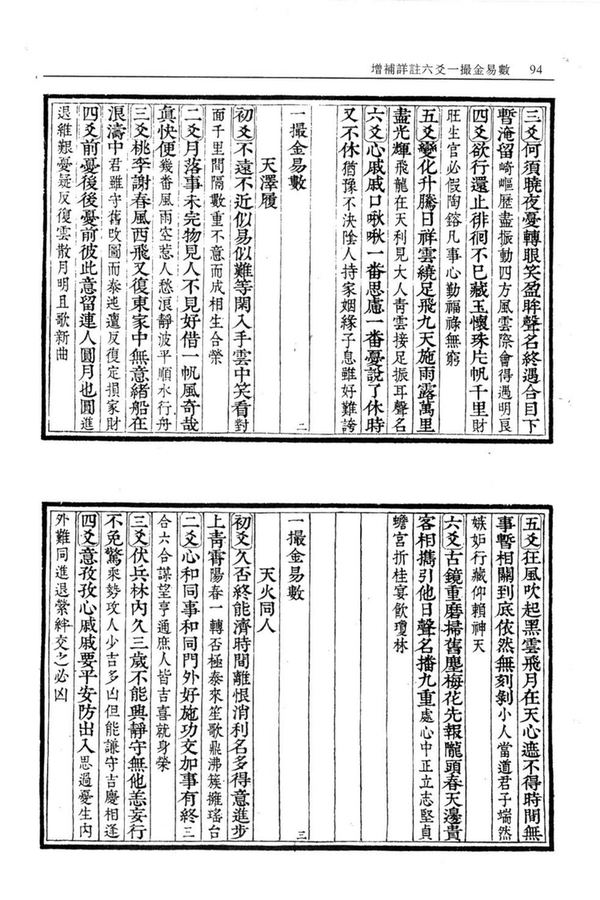 增補詳註六爻一撮金易數 94
三爻何須曉夜憂轉眼笑盈眸聲名終遇合目下
暫淹留崎嶇歷盡振動四方風雲際會得遇明良
四爻欲行還止徘徊不已藏玉懷珠片帆千里財
旺生官必假陶鎔凡事心勤福祿無窮
五爻變化升騰日祥雲繞足飛九天施雨露萬里
盡光輝飛龍在天利見大人青雲接足振耳聲名
六爻心戚戚口啾啾一番思慮一番憂說了休時
又不休猶豫不決陰人持家姻緣子息雖好難誇
一撮金易數 二
天澤履
初爻不遠不近似易似難等閑入手雲中笑看對
面千里間隔數重不意而成相生合榮
二爻月落事未完物見人不見好借一帆風奇哉
眞快便幾番風雨空惹人愁浪靜波平順水行舟
三爻桃李謝春風西飛又復東家中無意緒船在
浪濤中君雖守舊改圖而泰迍邅反復定損家財
四爻前憂後後憂前彼此意留連人圓月也圓進
退維艱憂疑反復雲散月明且歌新曲
五爻狂風吹起黑雲飛月在天心遮不得時間無
事暫相關到底依然無刻剝小人當道君子端然
嫉妒行藏仰賴神天
六爻古鏡重磨掃舊塵梅花先報隴頭春天邊貴
客相攜引他日聲名播九重處心中正立志堅貞
蟾宮折桂宴飲瓊林
一撮金易數 三
天火同人
初爻久否終能濟時間離恨消利名多得意進步
上青霄陽春一轉否極泰來笙歌鼎沸簇擁瑤台
二爻心和同事和同門外好施功交加事有終三
合六合謀望亨通庶人皆吉喜就身榮
三爻伏兵林內久三歲不能興靜守無他恙妄行
不免驚乘勢攻人少吉多凶但能謙守吉慶相逢
四爻意孜孜心戚戚要平安防出入思過憂生內
外難同進退縈絆交之必凶